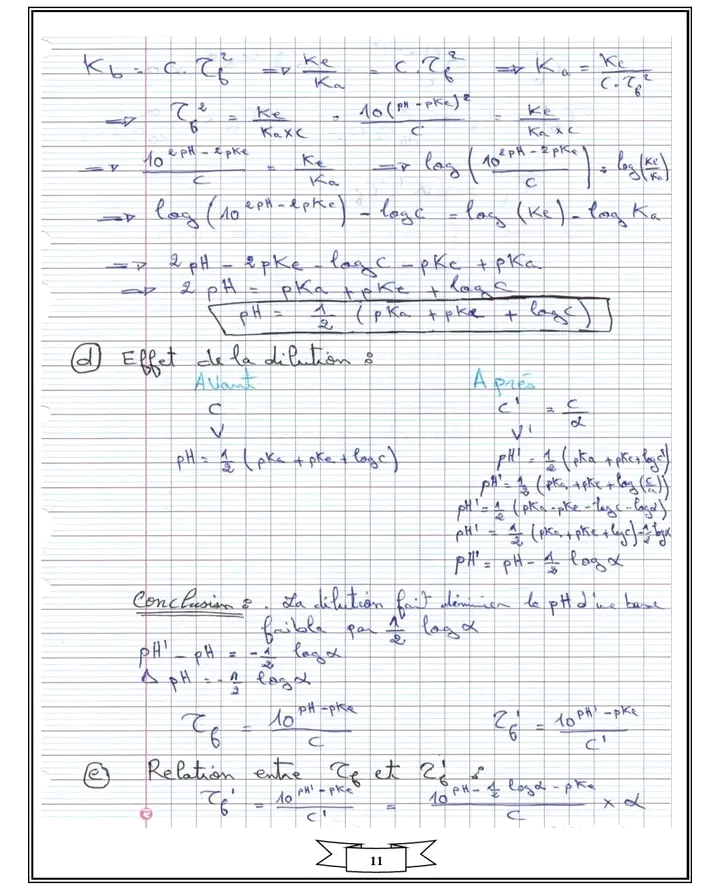 Kb = C.τб² => Ke/Ka = C.τб² => Ka = Ke/C.τб²
=> τб² = Ke/Ka×C = 10(pH-pKe)²/C = Ke/Ka×C
=> 10^2pH-2pKe/C = Ke/Ka => log(10^2pH-2pKe/C) = log(Ke/Ka)
=> log(10^2pH-2pKe) - logC = log(Ke) - log Ka
=> 2pH - 2pKe - logC - pKe + pKa
=> 2pH = pKa + pKe + logC
pH = 1/2 (pKa + pKe + logC)
d) Effet de la dilution :
Avant Après
C C' = C/α
V V'
pH = 1/2 (pKa + pKe + logC) pH' = 1/2 (pKa + pKe + logC')
pH' = 1/2 (pKa + pKe + log(C/α))
pH' = 1/2 (pKa - pKe - logC - logα)
pH' = 1/2 (pKa + pKe + logC) - 1/2 logα
pH' = pH - 1/2 logα
Conclusion : . La dilution fait diminier le pH d'une base
faible par 1/2 logα
pH' - pH = -1/2 logα
Δ pH = -1/2 logα
τб = 10^pH-pKe/C τб' = 10^pH'-pKe/C'
e) Relation entre τб et τб' :
τб' = 10^pH'-pKe/C' = 10^pH-1/2 logα-pKe/C × α
11